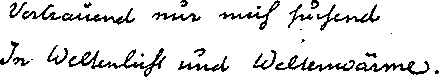 Vertrauend nur mich suchend
In Weltenlicht und Weltenwärme.